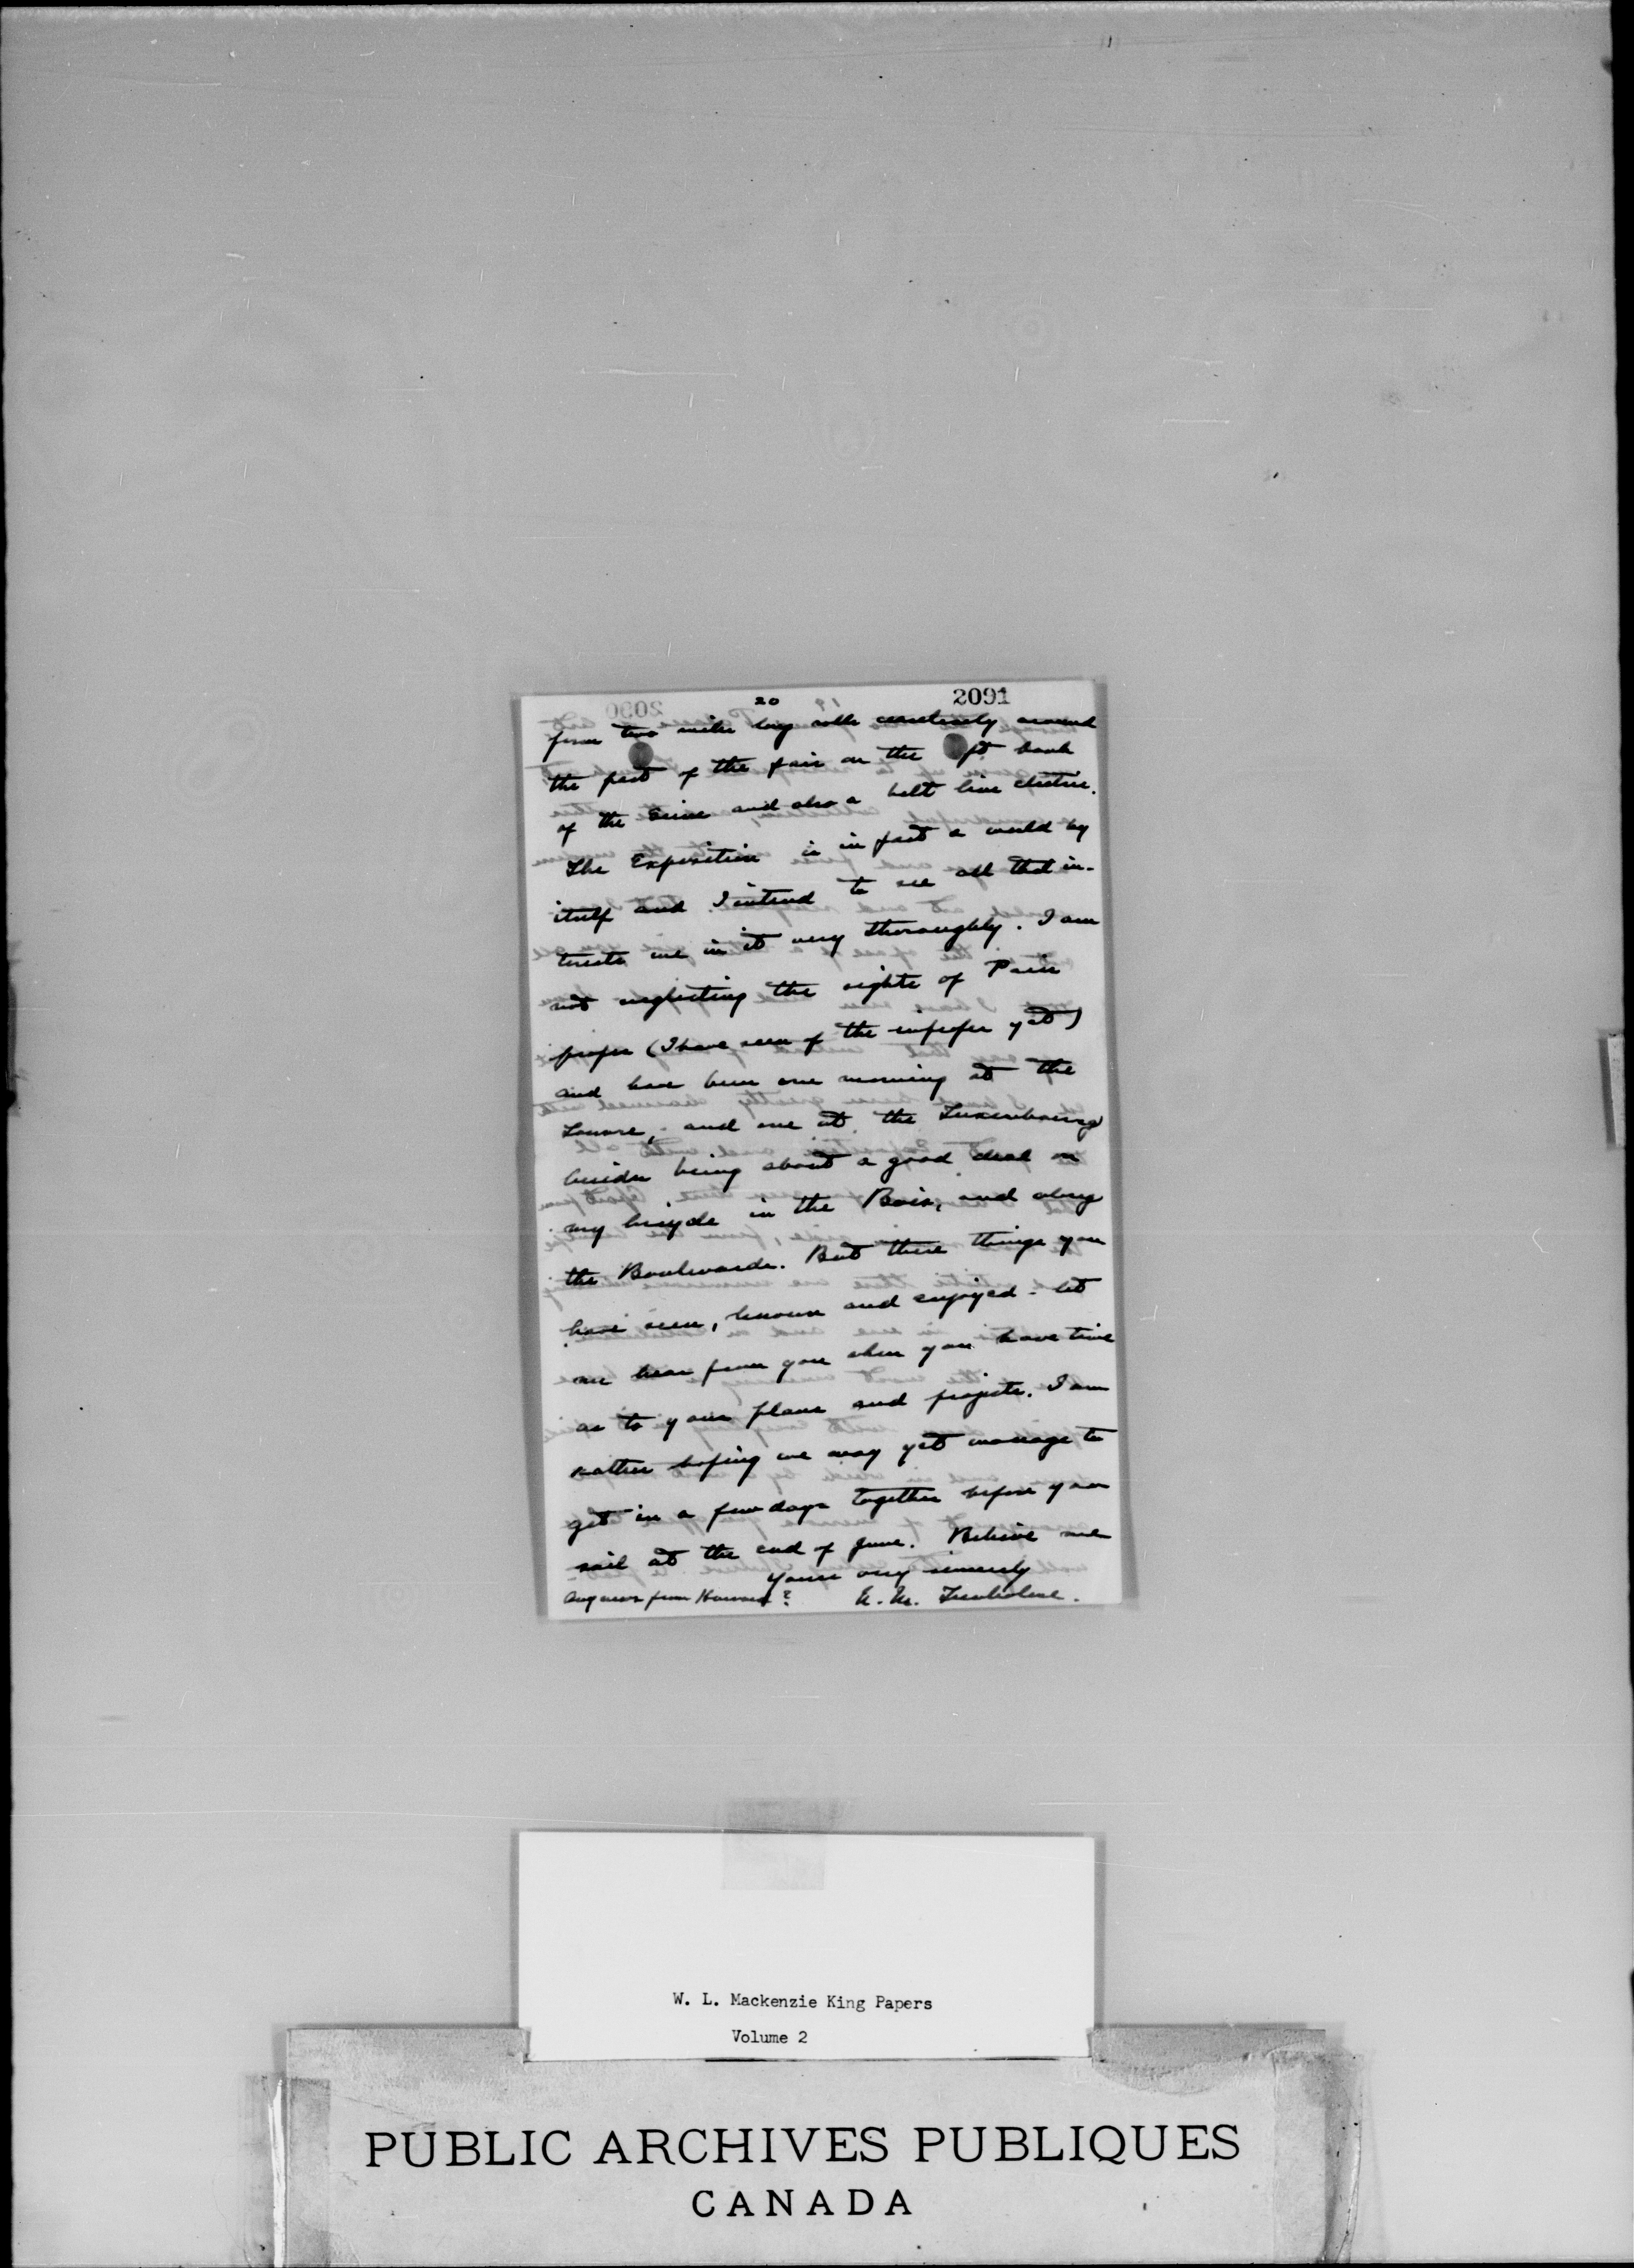 20
2091
from two miles long rolls ceaselessly around
the part of the fair on the ft bank
of the Seine and also a belt line electric.
The Exposition is in fact a world by
itself and I intend to see all that in-
terests me in it very thoroughly. I am
not neglecting the sights of Paris
proper (I have seen of the improper yet)
and have been one morning at the
Louvre, and one at the Luxembourg
besides being about a good deal on
my bicycle in the Bois, and along
the Boulevards. But these things you
have seen, known and enjoyed - let
me hear from you when you have time
as to your plans and projects. I am
rather hoping we may yet manage to
get in a few days together before you
sail at the end of June. Believe me
yours very sincerely
Any news from Harvard? N. M. Trenholme.
W. L. Mackenzie King Papers
Volume 2
PUBLIC ARCHIVES PUBLIQUES
CANADA